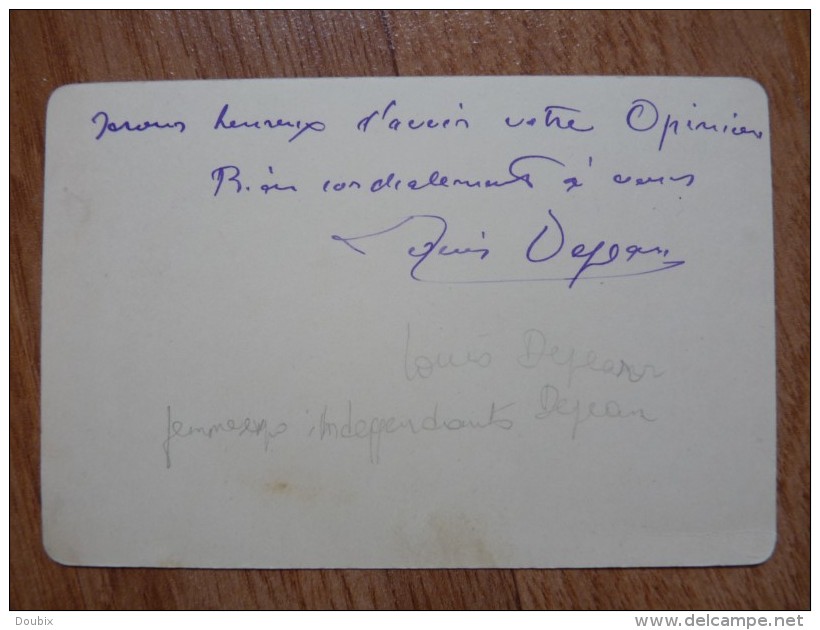 serons heureux d'avoir votre Opinion
Bien cordialement à vous
Louis Dejean
Louis Dejean
independants Dejean
Doubix
www.delcampe.net